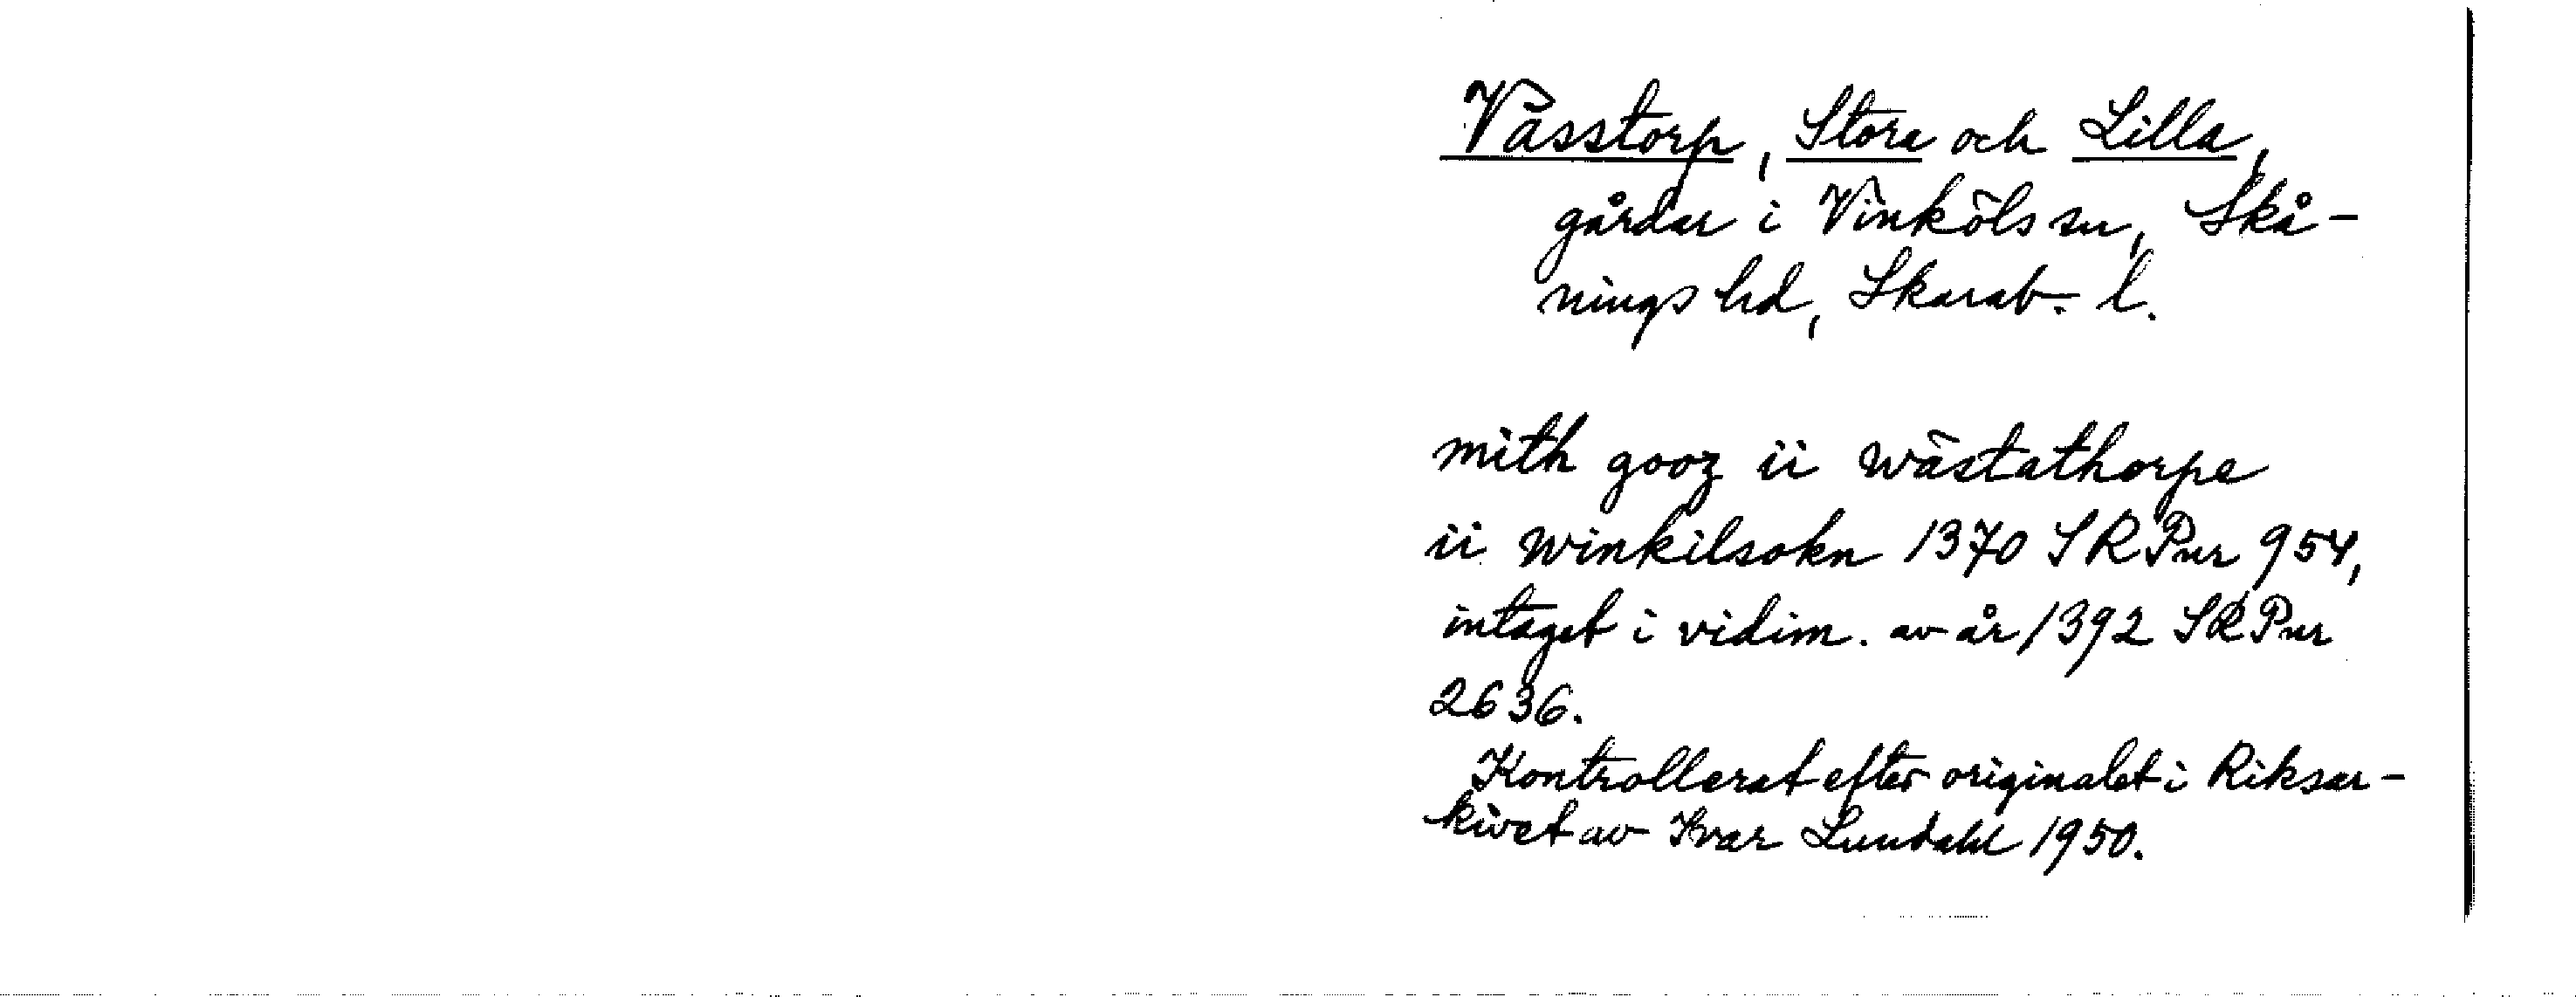 Vässtorp, Stora och Lilla,
gårdar i Vinköls sn, Skå-
nings hd, Skarab. l.
mith gooz ii wästathorpe
ii winkilsokn 1370 SRPnr 954,
intaget i vidim. av år 1392 SRPnr
2636.
Kontrollerat efter originalet i Riksar-
kivet av Ivar Lundahl 1950.